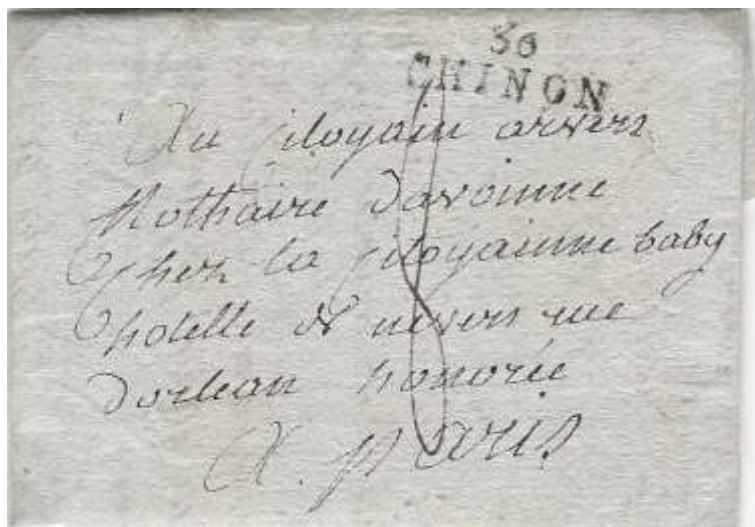 36
CHINON
Au Citoyain arvers
Nothaire davoinne
Ches la Citoyainne baby
hotelle de nevers rue
dorlean honorée
A paris